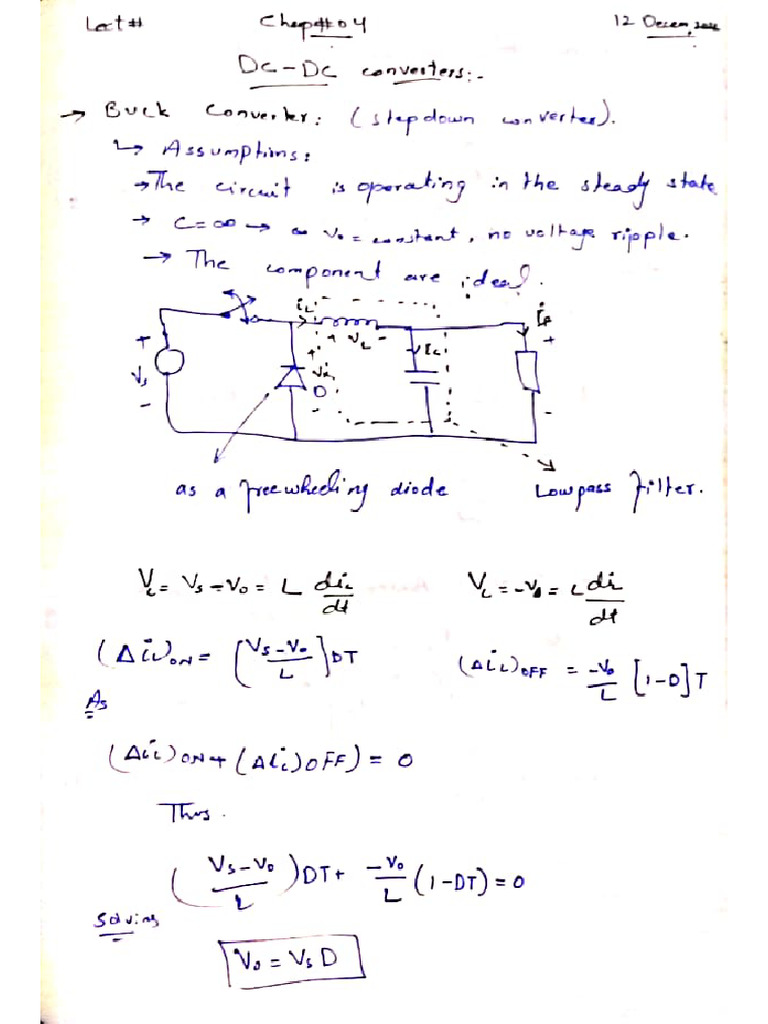 Lect# Chap#04 12 Decem, 2022
DC-DC converters:-
→ Buck Converter: (stepdown converter).
↳ Assumptions:
→ The circuit is operating in the steady state
→ C=∞ → Vo = constant, no voltage ripple.
→ The component are ideal.
iL
iR
+ VL -
+ Vs -
+
IC
D
-
+
-
as a freewheeling diode Lowpass filter.
VL = Vs - Vo = L diL/dt VL = -Vo = L diL/dt
(ΔiL)ON = [Vs-Vo/L]DT (ΔiL)OFF = -Vo/L [1-D]T
As
(ΔiL)ON + (ΔiL)OFF) = 0
Thus.
(Vs-Vo/L)DT + -Vo/L (1-DT) = 0
Solving
Vo = Vs D